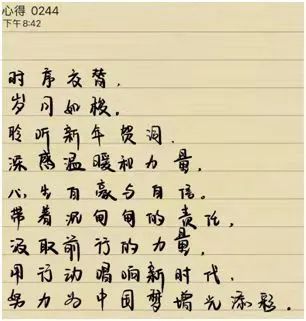 心得 0244
下午8:42
时序交替，
岁月如梭。
聆听新年贺词，
深感温暖和力量，
心生自豪与自信。
带着沉甸甸的责任，
汲取前行的力量，
用行动唱响新时代，
努力为中国梦增光添彩。